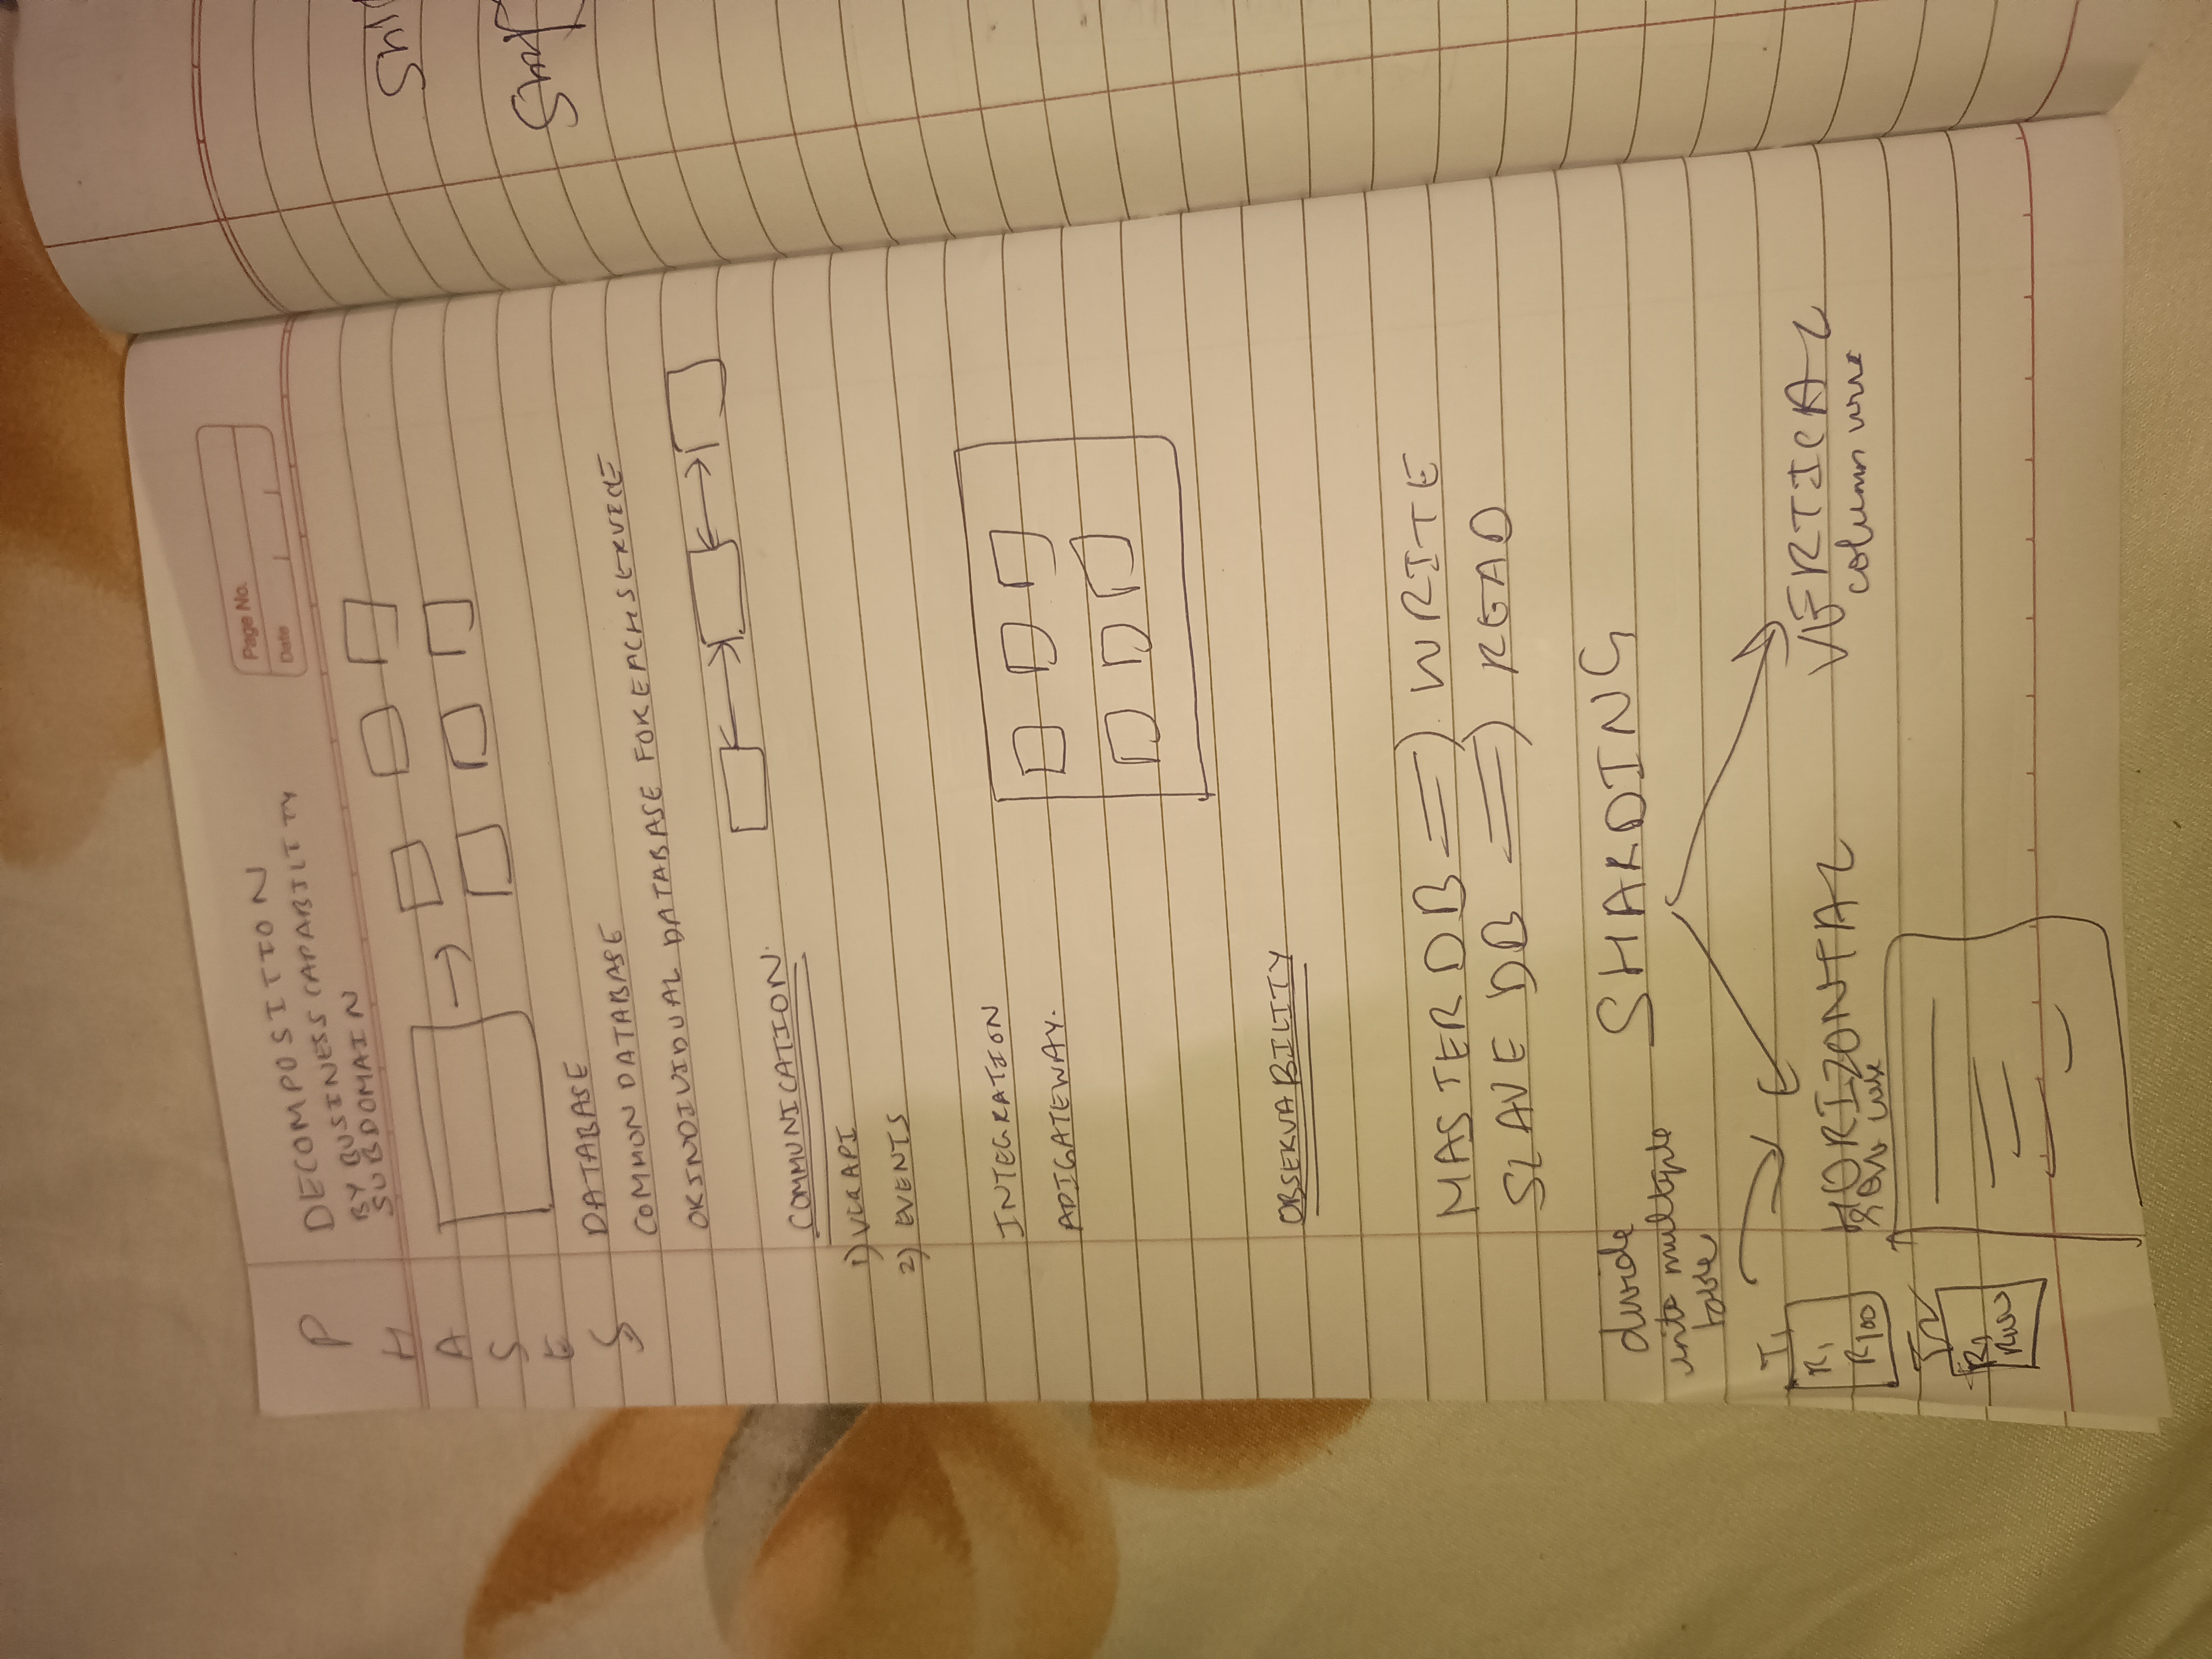 Page No.
Date
PHASES
DECOMPOSITION
BY BUSINESS CAPABILITY
SUBDOMAIN
DATABASE
COMMON DATABASE
OR INDIVIDUAL DATABASE FOR EACH SERVICE
COMMUNICATION.
1) VIA API
2) EVENTS
INTEGRATION
API GATEWAY.
OBSERVABILITY
MASTER DB => WRITE
SLAVE DB => READ
SHARDING
divide
into multiple
table
T1
R1
R100
HORIZONTAL
Row wise
VERTICAL
column wise
T2